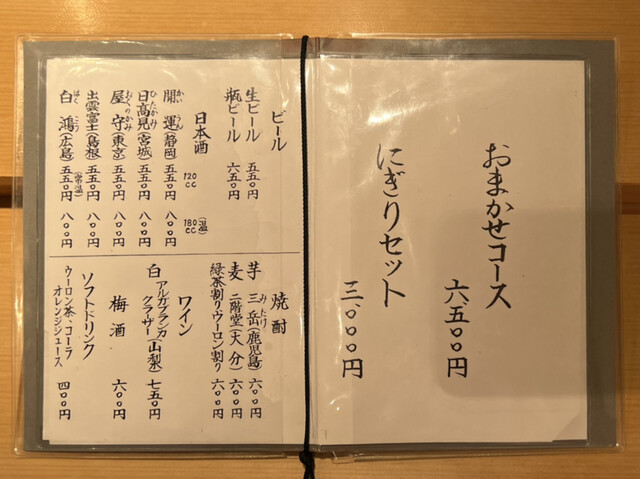 おまかせコース
六、五〇〇円
にぎりセット
三、〇〇〇円
ビール
生ビール 五五〇円
瓶ビール 六五〇円
日本酒 120cc 180cc(温)
開運(静岡) 五五〇円 八〇〇円
かいうん
日高見(宮城) 五五〇円 八〇〇円
ひたかみ
屋守(東京) 五五〇円 八〇〇円
おくのかみ
出雲富士(島根) 五五〇円 八〇〇円
白鴻(広島) 五五〇円(常温) 八〇〇円
はくこう
焼酎
芋 三岳(鹿児島) 六〇〇円
みたけ
麦 二階堂(大分) 六〇〇円
緑茶割り ウーロン割り 六〇〇円
ワイン
白 アルガブランカ
クラザー(山梨) 七五〇円
梅酒 六〇〇円
ソフトドリンク
ウーロン茶・コーラ
オレンジジュース 四〇〇円